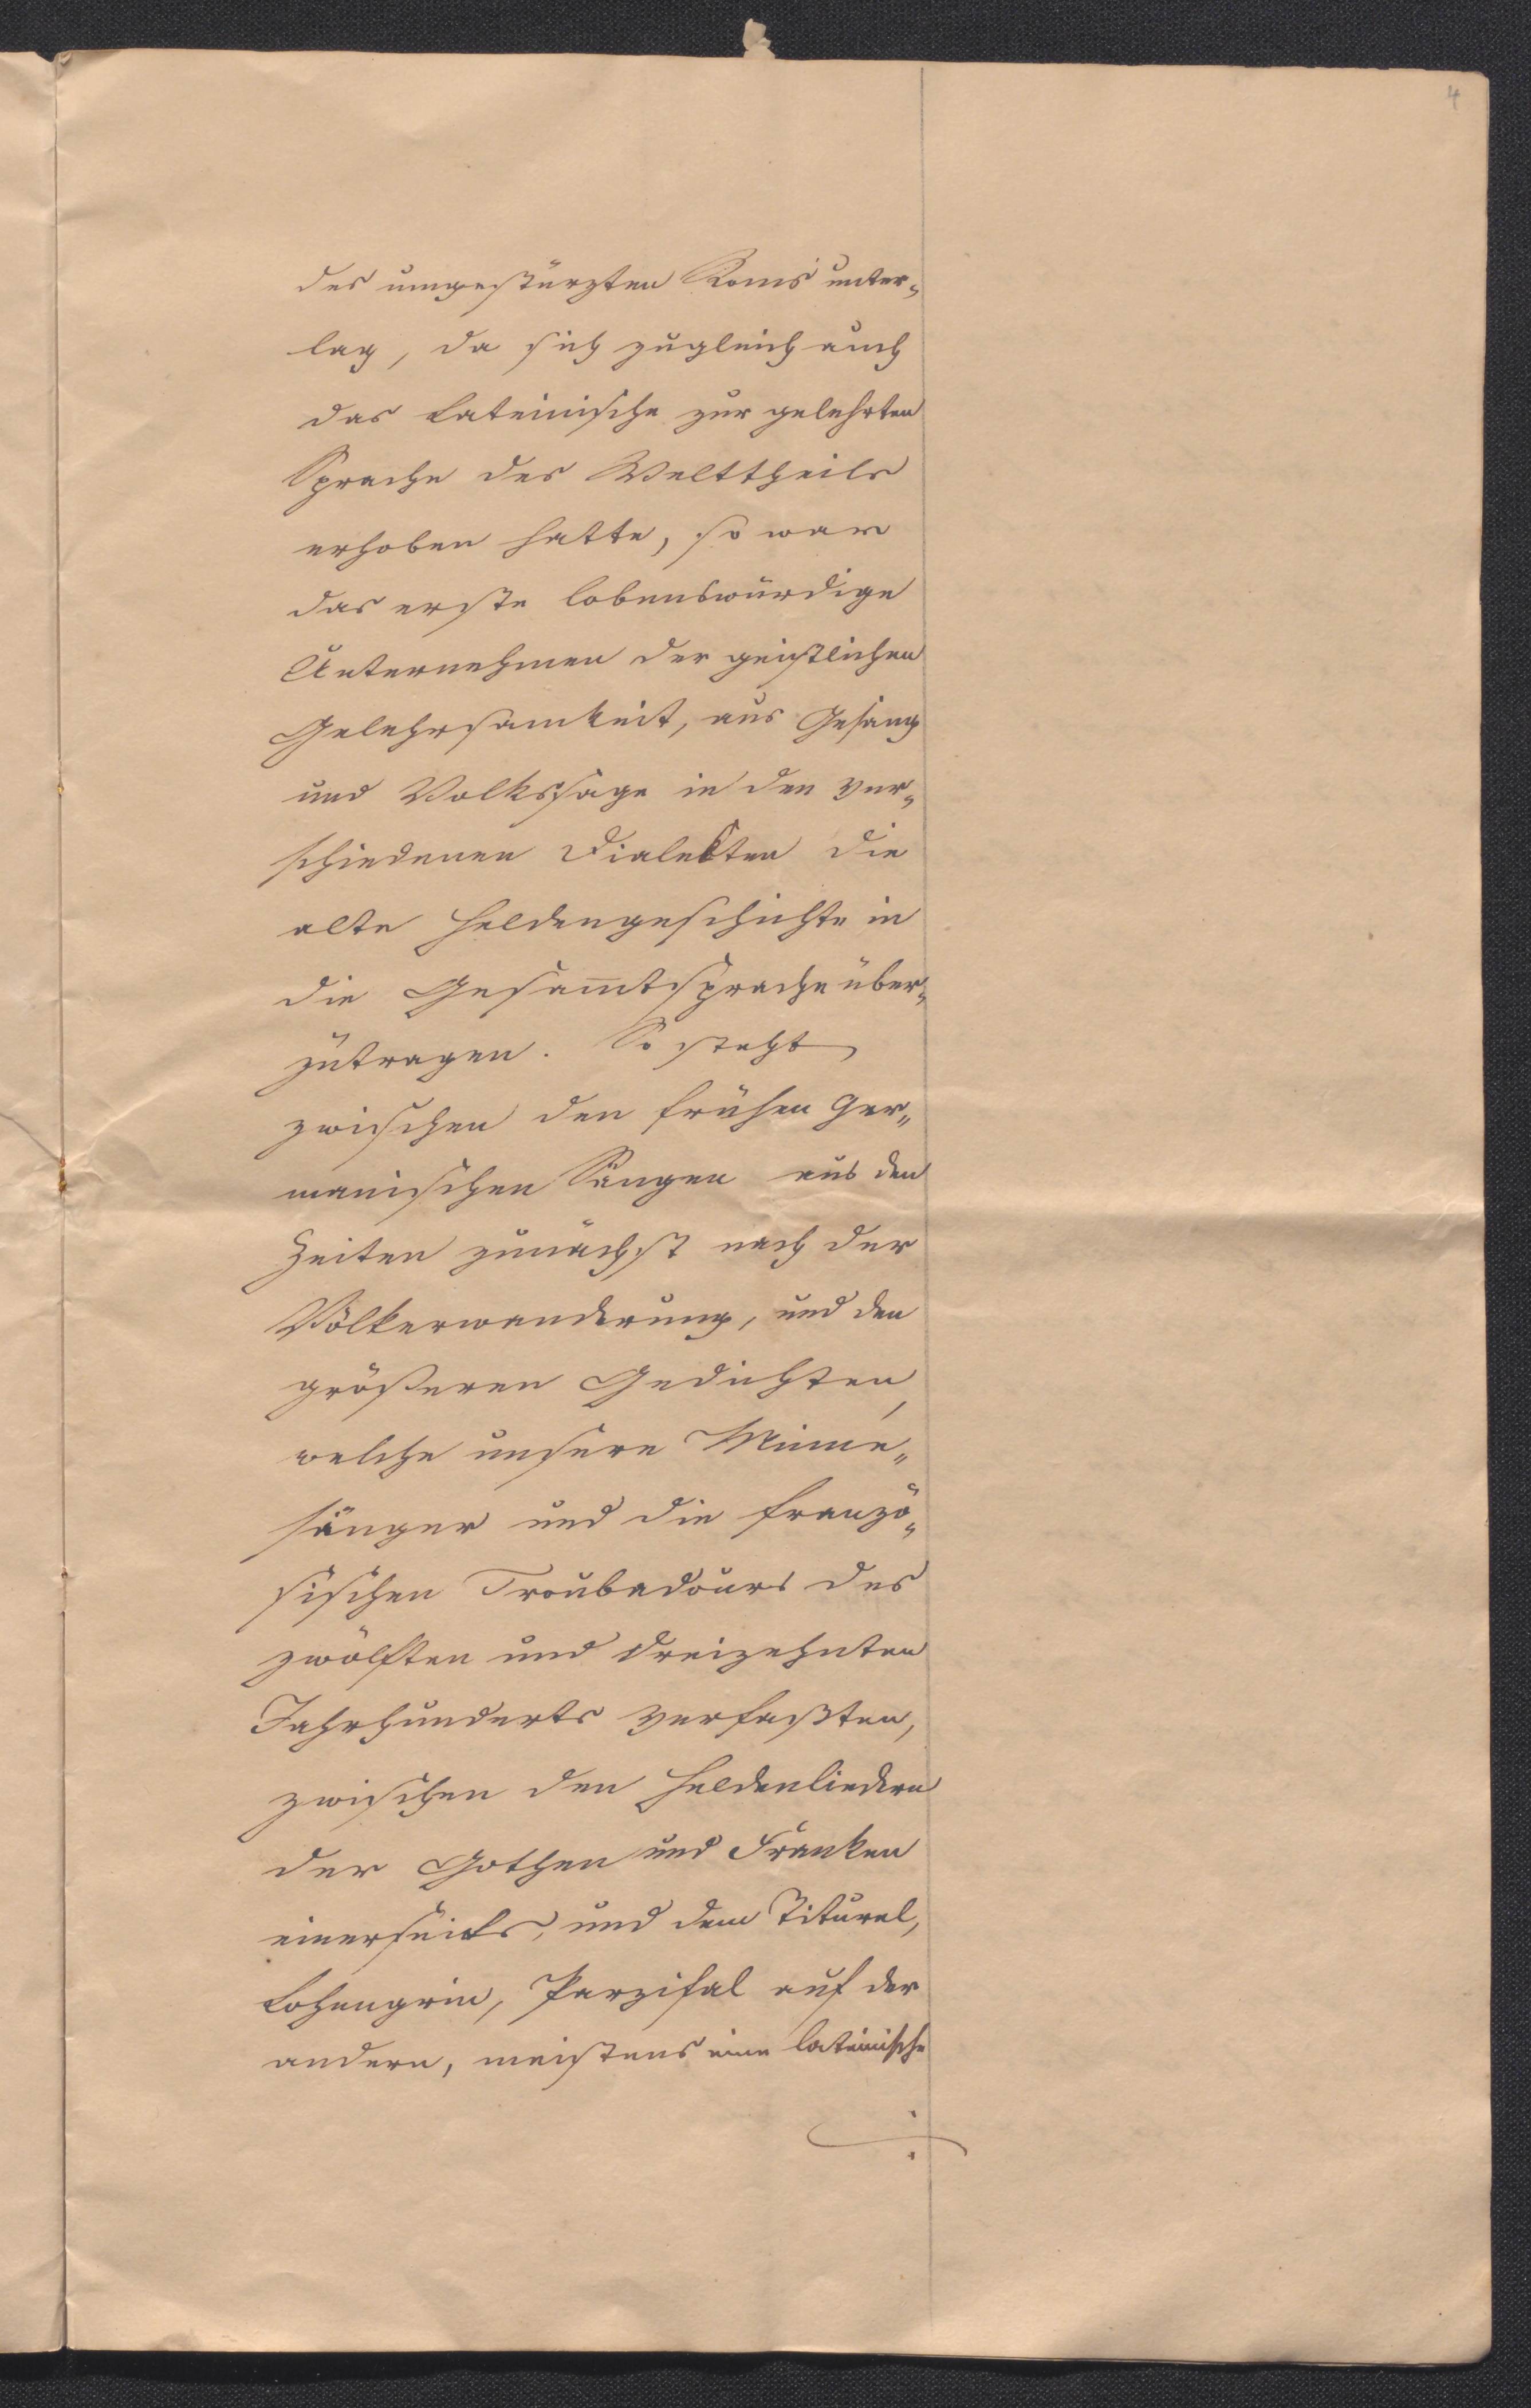 4
des umgestürzten Roms unter-
lag, da sich zugleich auch
das Lateinische zur gelehrten
Sprache des Welttheils
erhoben hatte, so war
das erste lobenswürdige
Unternehmen der geistlichen
Gelehrsamkeit, aus Gesang
und Volkssage in den ver-
schiedenen Dialekten die
alte Heldengeschichte in
die Gesam̅tsprache über-
zutragen. So steht
zwischen den frühen Ger-
manischen Sängen aus den
Zeiten zunächst nach der
Völkerwanderung, und den
größeren Gedichten,
welche unsere Minne-
sänger und die franzö-
sischen Troubadours des
zwölften und dreizehnten
Jahrhunderts verfaßten,
zwischen den Heldenliedern
der Gothen und Franken
einerseits, und dem Titurel,
Lohengrin, Parzifal auf der
andern, meistens eine lateinische